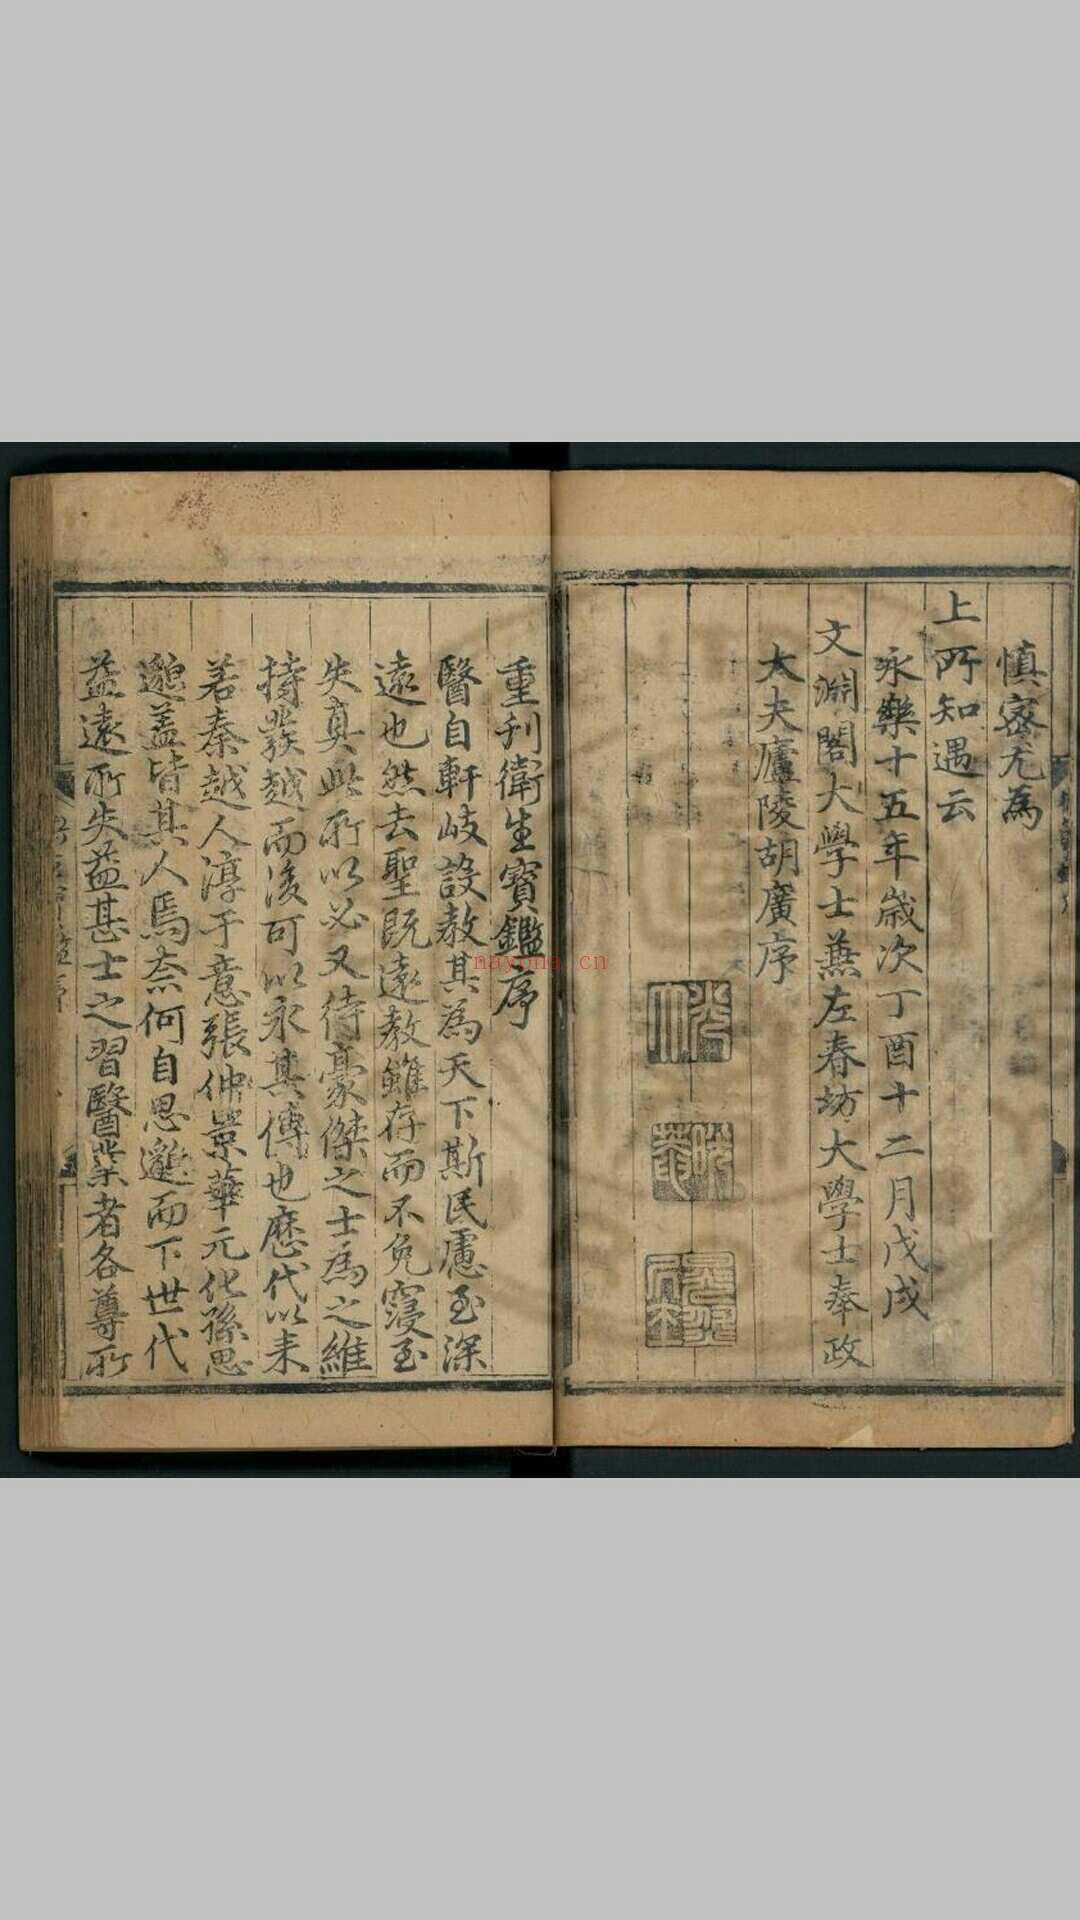 慎密尤為
上所知遇云
永樂十五年歲次丁酉十二月戊戌
文淵閣大學士兼左春坊大學士奉政
大夫廬陵胡廣序
重刋衛生寶鑑序
醫自軒岐設教其為天下斯民慮至深
遠也然去聖既遠教雖存而不免寖至
失真此所以必又待豪傑之士為之維
持發越而後可以永其傳也歷代以来
若秦越人淳于意張仲景華元化孫思
邈蓋皆其人焉奈何自思邈而下世代
益遠所失益甚士之習醫業者各尊所
nayona.cn